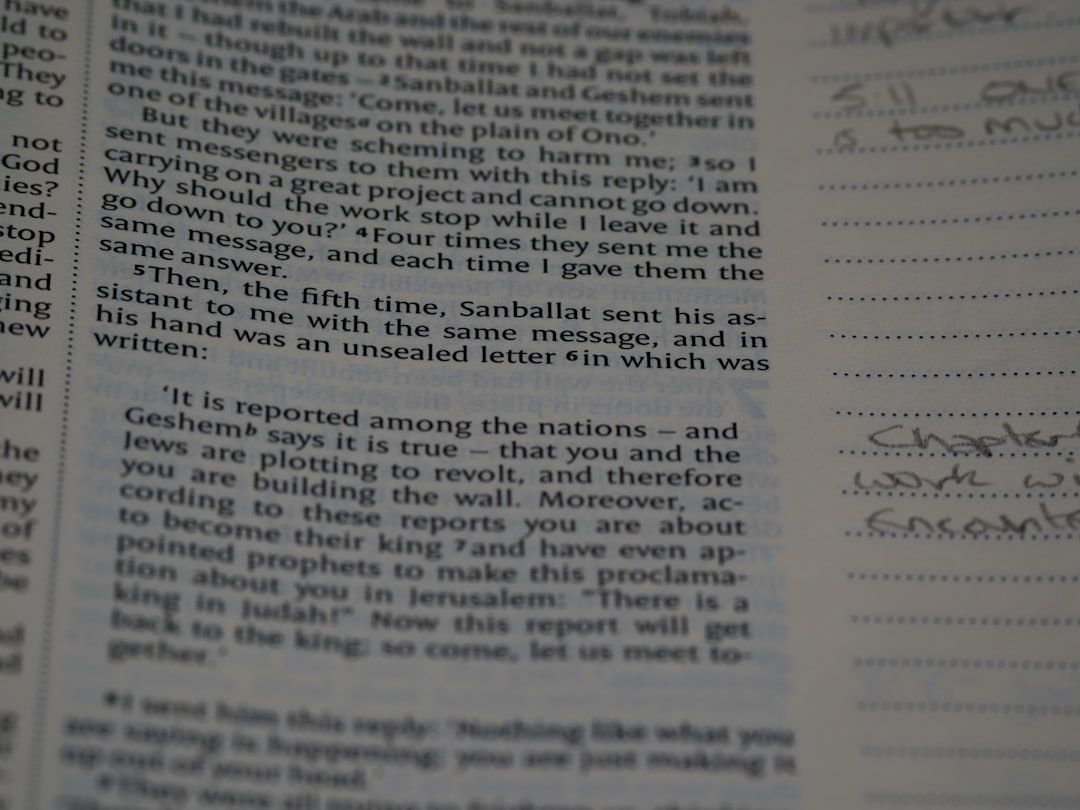 have
ld to
peo-
They
ng to
not
God
ies?
end-
stop
edi-
and
ging
new
will
will
the
hey
my
of
es
be
the Arab and the rest of our enemies
that I had rebuilt the wall and not a gap was left
in it – though up to that time I had not set the
doors in the gates – 2 Sanballat and Geshem sent
me this message: ‘Come, let us meet together in
one of the villagesa on the plain of Ono.’
But they were scheming to harm me; 3 so I
sent messengers to them with this reply: ‘I am
carrying on a great project and cannot go down.
Why should the work stop while I leave it and
go down to you?’ 4 Four times they sent me the
same message, and each time I gave them the
same answer.
5 Then, the fifth time, Sanballat sent his as-
sistant to me with the same message, and in
his hand was an unsealed letter 6 in which was
written:
‘It is reported among the nations – and
Geshemb says it is true – that you and the
Jews are plotting to revolt, and therefore
you are building the wall. Moreover, ac-
cording to these reports you are about
to become their king 7 and have even ap-
pointed prophets to make this proclama-
tion about you in Jerusalem: “There is a
king in Judah!” Now this report will get
back to the king; so come, let us meet to-
gether.’
8 I sent him this reply: ‘Nothing like what you
are saying is happening; you are just making it
up out of your head.’
9 They were all trying to frighten us, thinking
5:11 ONE
a too muc
Chapter
work wi
Encount